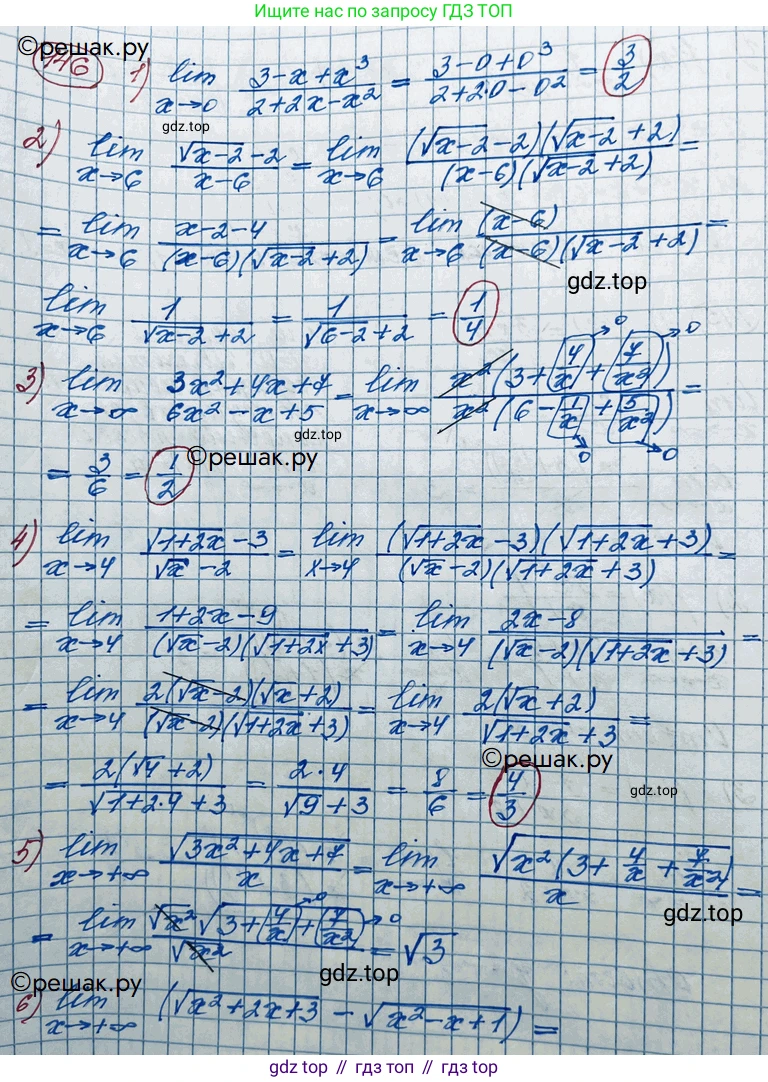 Ищите нас по запросу ГДЗ ТОП
©решак.ру
146
1) lim x→0 (3-x+x³)/(2+2x-x²) = (3-0+0³)/(2+2·0-0²) = 3/2
gdz.top
2) lim x→6 (√(x-2)-2)/(x-6) = lim x→6 ((√(x-2)-2)(√(x-2)+2))/((x-6)(√(x-2)+2)) =
= lim x→6 (x-2-4)/((x-6)(√(x-2)+2)) = lim x→6 (x-6)/((x-6)(√(x-2)+2)) =
gdz.top
lim x→6 1/(√(x-2)+2) = 1/(√(6-2)+2) = 1/4
3) lim x→∞ (3x²+4x+7)/(6x²-x+5) = lim x→∞ (x²(3+4/x+7/x²))/(x²(6-1/x+5/x²)) =
→0 →0 →0 →0
gdz.top
= 3/6 = 1/2
©решак.ру
4) lim x→4 (√(1+2x)-3)/(√x-2) = lim x→4 ((√(1+2x)-3)(√(1+2x)+3))/((√x-2)(√(1+2x)+3)) =
= lim x→4 (1+2x-9)/((√x-2)(√(1+2x)+3)) = lim x→4 (2x-8)/((√x-2)(√(1+2x)+3)) =
= lim x→4 (2(√x-2)(√x+2))/((√x-2)(√(1+2x)+3)) = lim x→4 (2(√x+2))/(√(1+2x)+3) =
©решак.ру
= (2(√4+2))/(√(1+2·4)+3) = (2·4)/(√9+3) = 8/6 = 4/3
gdz.top
5) lim x→+∞ √(3x²+4x+7)/x = lim x→+∞ √(x²(3+4/x+7/x²))/x =
gdz.top
= lim x→+∞ (√x² √(3+4/x+7/x²))/√x² = √3
→0 →0
gdz.top
©решак.ру
6) lim x→+∞ (√(x²+2x+3) - √(x²-x+1)) =
gdz.top // гдз.топ // gdz.top